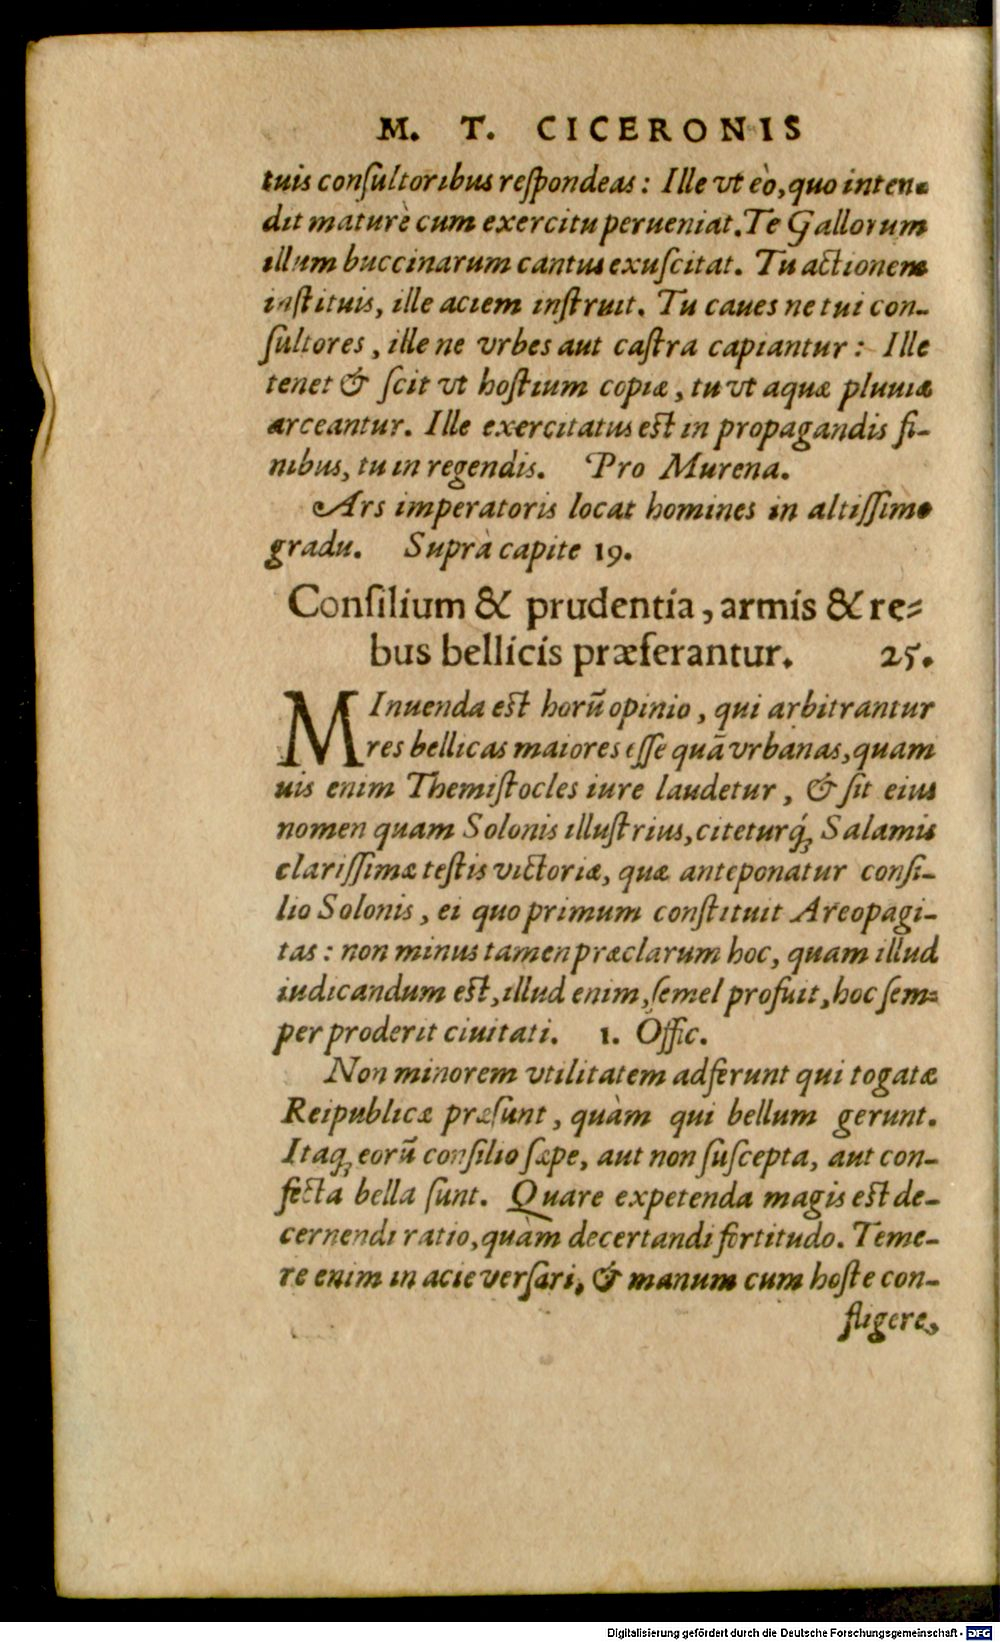 M. T. CICERONIS
tuis conſultoribus reſpondeas: Ille vt eò, quo inten-
dit maturè cum exercitu perueniat. Te Gallorum
illum buccinarum cantus exuſcitat. Tu actionem
inſtituis, ille aciem inſtruit. Tu caues ne tui con-
ſultores, ille ne vrbes aut caſtra capiantur: Ille
tenet & ſcit vt hoſtium copiæ, tu vt aquæ pluuiæ
arceantur. Ille exercitatus eſt in propagandis fi-
nibus, tu in regendis. Pro Murena.
Ars imperatoris locat homines in altiſſimo
gradu. Suprà capite 19.
Conſilium & prudentia, armis & re-
bus bellicis præferantur. 25.
MInuenda eſt horũ opinio, qui arbitrantur
res bellicas maiores eſſe quã vrbanas, quam
uis enim Themiſtocles iure laudetur, & ſit eius
nomen quam Solonis illuſtrius, citeturq́; Salamis
clariſſimæ teſtis victoriæ, quæ anteponatur conſi-
lio Solonis, ei quo primum conſtituit Areopagi-
tas: non minus tamen præclarum hoc, quam illud
iudicandum eſt, illud enim, ſemel profuit, hoc ſem-
per proderit ciuitati. 1. Offic.
Non minorem vtilitatem adferunt qui togatæ
Reipublicæ præſunt, quàm qui bellum gerunt.
Itaq; eorũ conſilio ſæpe, aut non ſuſcepta, aut con-
fecta bella ſunt. Quare expetenda magis eſt de-
cernendi ratio, quàm decertandi fortitudo. Teme-
re enim in acie verſari, & manum cum hoſte con-
fligere,
Digitalisierung gefördert durch die Deutsche Forschungsgemeinschaft - DFG